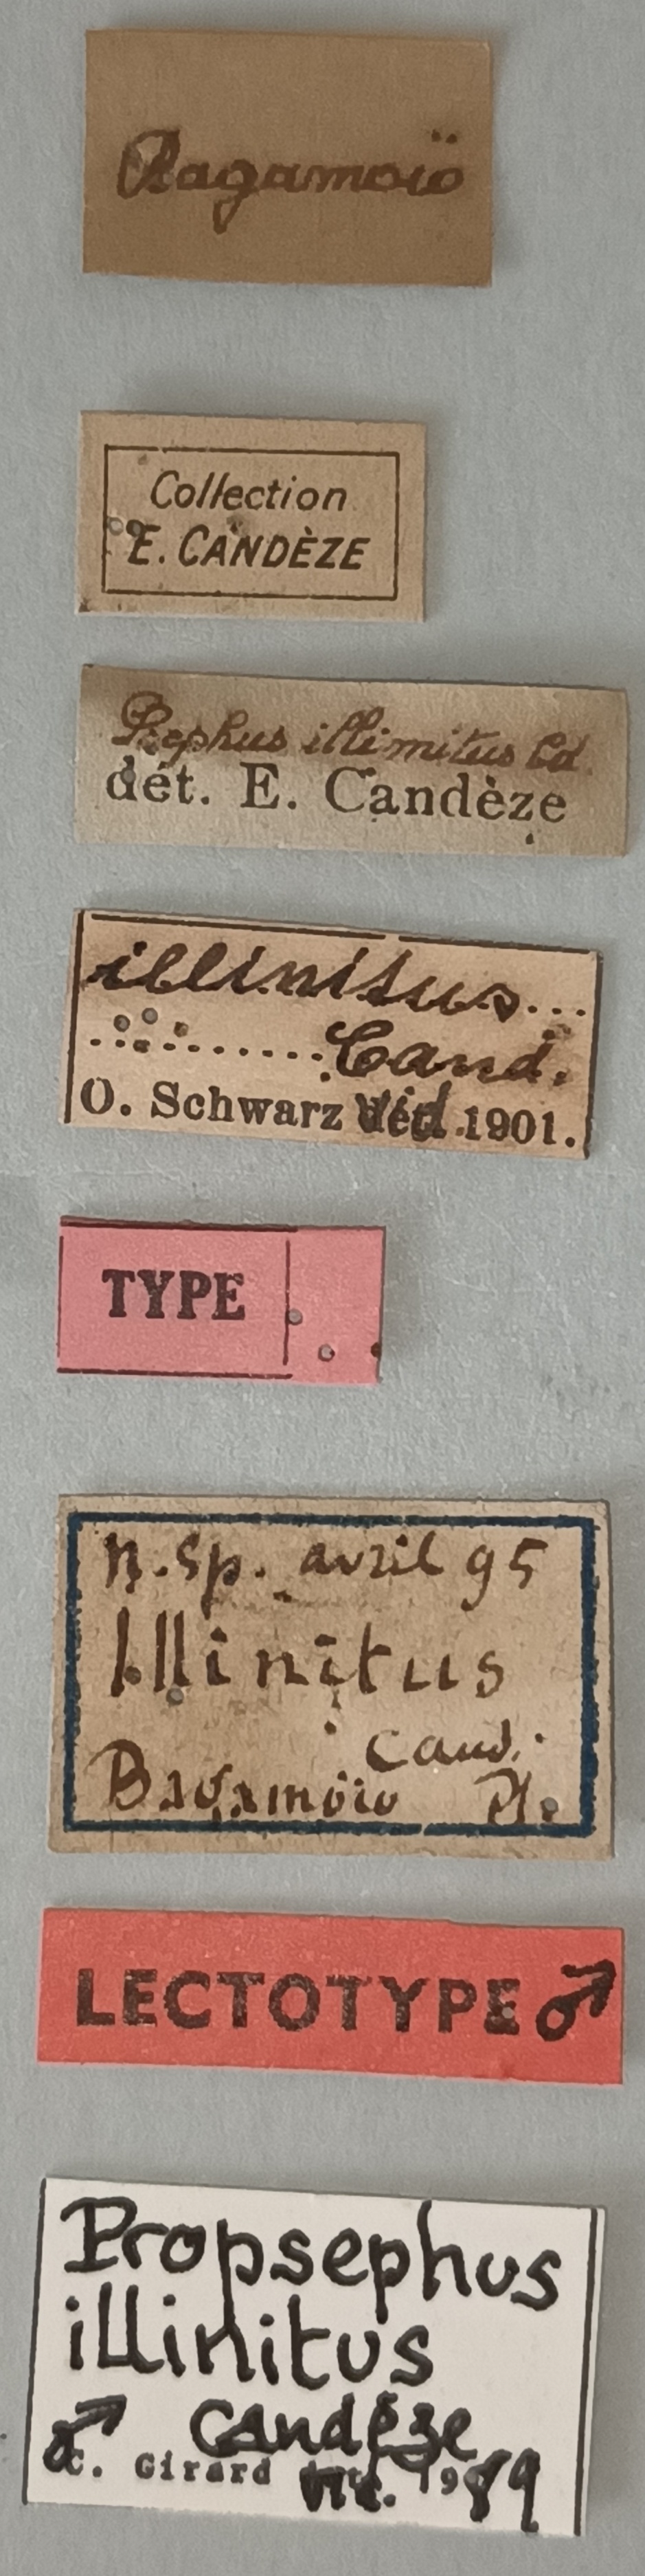 Bagamoïo
Collection
E. CANDÈZE
Psephus illimitus Cd.
dét. E. Candèze
illinitus...
..........Cand.
O. Schwarz vid. 1901.
TYPE
n. sp. avril 95
Illinitus
Cand.
Bagamoio Pl.
LECTOTYPE ♂
Propsephus
illinitus
♂ Candèze
C. Girard vid. 1989